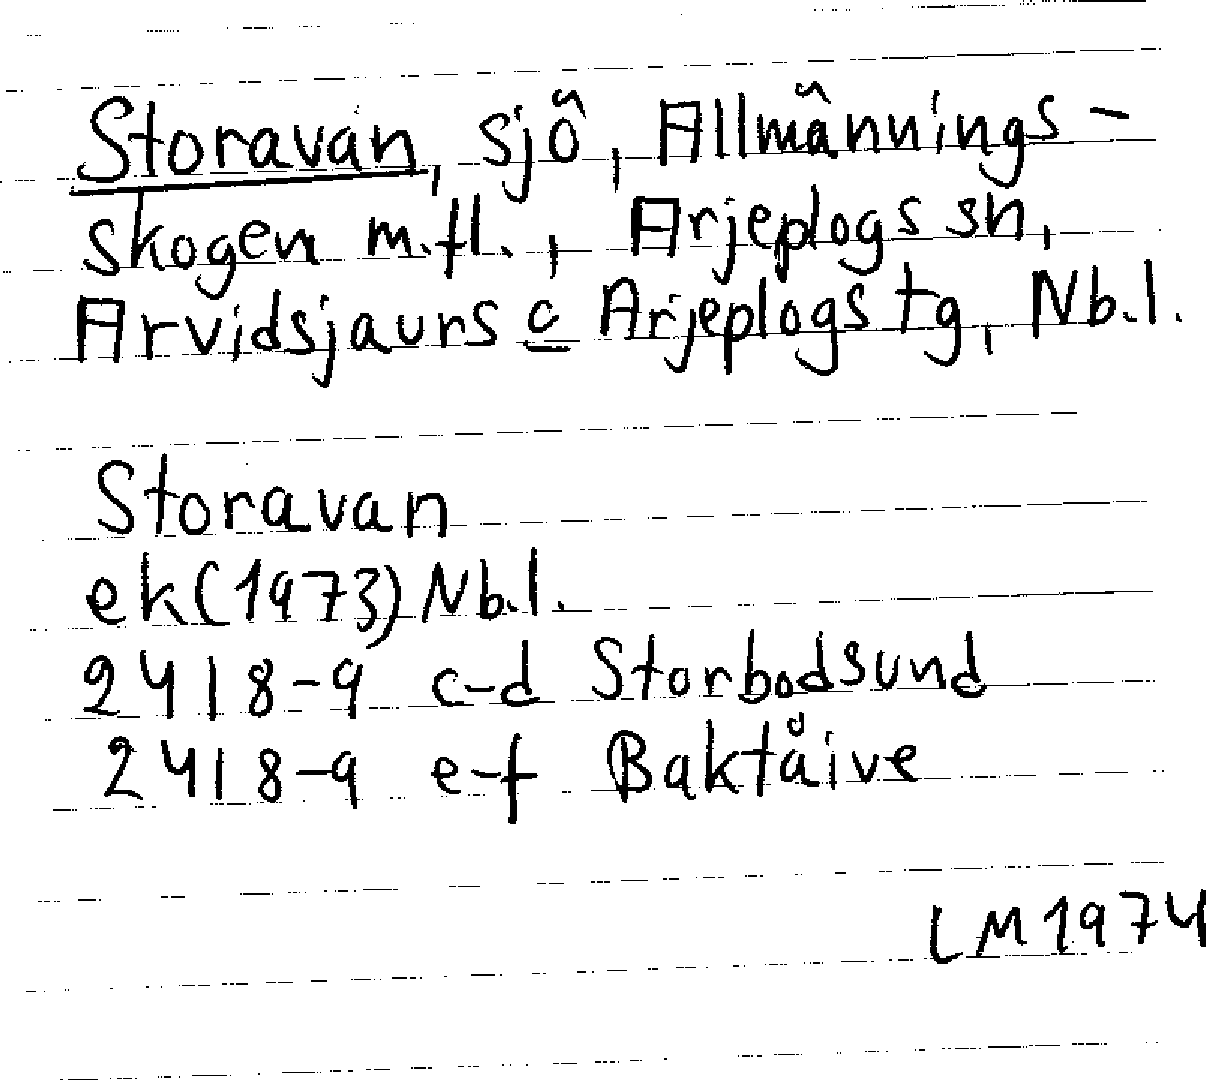 Storavan, sjö, Allmännings-
skogen m.fl., Arjeplogs sn,
Arvidsjaurs o Arjeplogs tg, Nb.l.
Storavan
ek(1973) Nb.l.
2418-9 c-d Storbodsund
2418-9 e-f Baktåive
LM 1974